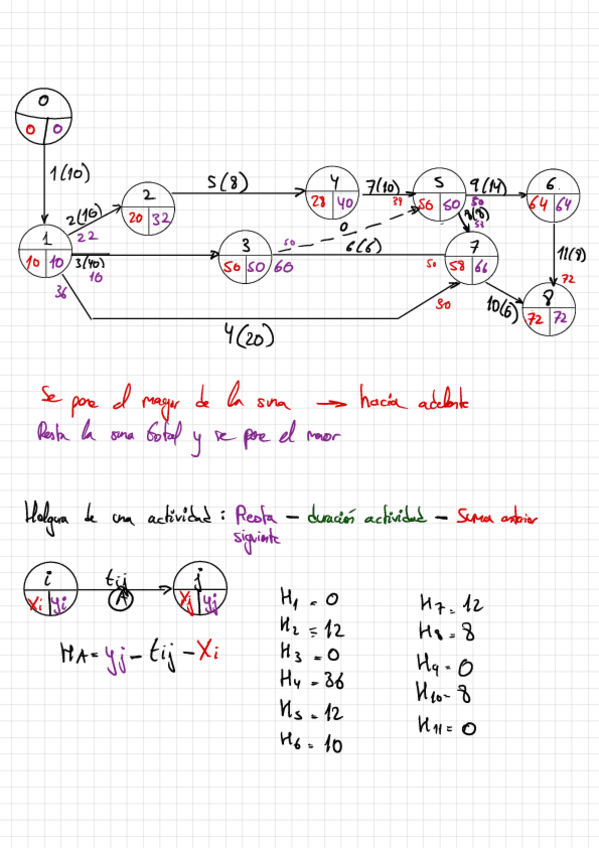 0
0 0
1(10)
2
20 32
5(8)
4
28 40
7(10)
5
50 50
9(14)
6
64 64
2(10)
22
1
10 10
3(40)
10
36
3
50 50 60
50
0
6(6)
38
50
8(8)
58
7
58 66
50
30
11(8)
72
10(6)
8
72 72
4(20)
Se pone el mayor de la suma → hacia adelante
Resta la suma total y se pone el menor
Holgura de una actividad: Resta siguiente - duración actividad - Suma anterior
i tij j
Xi yi A Xj yj
HA = yj - tij - Xi
H1 = 0
H2 = 12
H3 = 0
H4 = 36
H5 = 12
H6 = 10
H7 = 12
H8 = 8
H9 = 0
H10 = 8
H11 = 0